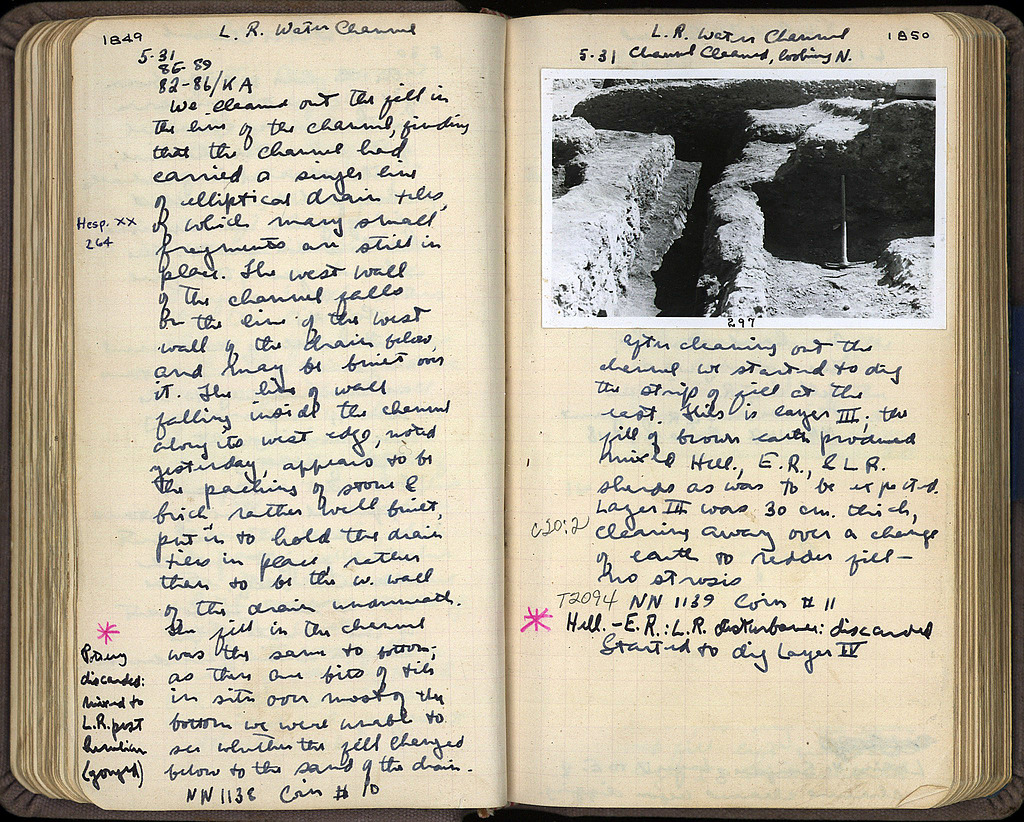 1849
L. R. Water Channel
5-31
8E-89
82-86/KA
We cleaned out the fill in
the line of the channel, finding
that the channel had
carried a single line
of elliptical drain tiles,
of which many small
fragments are still in
place. The west wall
of the channel falls
on the line of the west
wall of the drain below,
and may be built over
it. The line of wall
falling inside the channel
along its west edge, noted
yesterday, appears to be
the packing of stone &
brick rather well built,
put in to hold the drain
tiles in place, rather
than to be the w. wall
of the drain underneath.
The fill in the channel
was the same to bottom;
as there are bits of tile
in situ over most of the
bottom we were unable to
see whether the fill changed
below to the sand of the drain.
NN 1138 Coin # 10
Hesp. XX
264
Pottery
discarded:
mixed to
L.R. post
Herulian
(gouged)
1850
L. R. Water Channel
5-31 Channel Cleaned, looking N.
297
After cleaning out the
channel we started to dig
the strip of fill at the
east. This is layer III; the
fill of brown earth produced
mixed Hell., E.R., & L.R.
sherds as was to be expected.
Layer III was 30 cm. thick,
clearing away over a change
of earth to redder fill –
no strosis
C20:2
T2094 NN 1139 Coin # 11
Hell. - E.R.: L.R. disturbance: discarded
Started to dig Layer IV